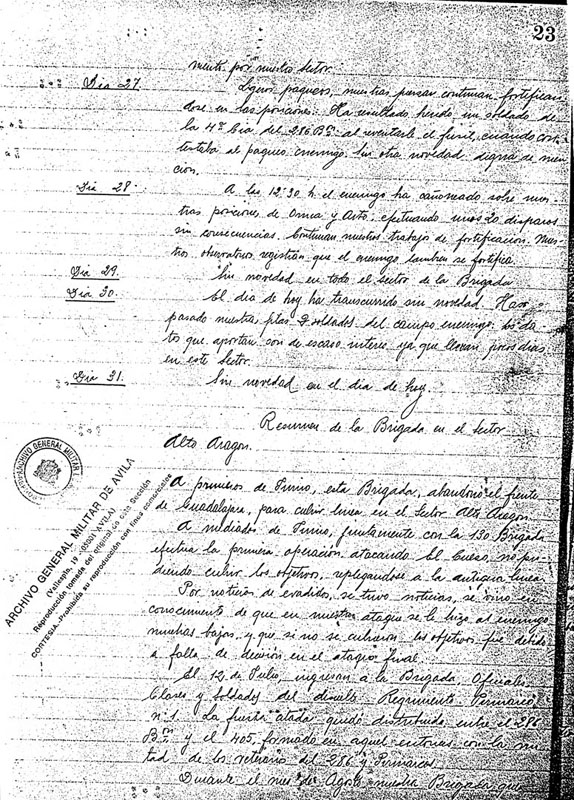 23
miento por nuestro Sector.
Dia 27. Ligeros paqueos, nuestras fuerzas continuan fortifican-
dose en las posiciones. Ha resultado herido un soldado de
la 4ª Cia del 286 Bon al reventarle el fusil, cuando con-
testaba al paqueo enemigo. Sin otra novedad digna de men-
cion.
Dia 28. A las 12'30 h. el enemigo ha cañoneado sobre nues-
tras posiciones de Orna y Arto, efectuando unos 20 disparos
sin consecuencias. Continuan nuestros trabajos de fortificacion. Nues-
tros observatorios registran que el enemigo tambien se fortifica.
Dia 29. Sin novedad en todo el Sector de la Brigada
Dia 30. El dia de hoy ha transcurrido sin novedad. Han
pasado a nuestras filas soldados del campo enemigo. Los da-
tos que aportan son de escaso interes ya que llevan pocos dias
en este Sector.
Dia 31. Sin novedad en el dia de hoy
Resumen de la Brigada en el Sector
Alto Aragon.
A primeros de Junio, esta Brigada, abandonó el frente
de Guadalajara, para cubrir linea en el Sector Alto Aragon.
A mediados de Junio, juntamente con la 130 Brigada
efectua la primera operación atacando El no pu-
diendo cubrir los objetivos, replegandose a la antigua linea.
Por noticias de evadidos, se tuvo noticias, se vino en
conocimiento de que en nuestro ataque se le hizo al enemigo
muchas bajas, y que si no se cubrieron los objetivos fue debido
a falta de decisión en el ataque final.
El 12 de Julio, ingresan a la Brigada Oficiales,
Clases y Soldados del disuelto Regimiento Pirenaico
nº 1. La fuerza citada quedó distribuida entre el 286
Bon y el 405, formado en aquel entonces con la mi-
tad de los veteranos del 286 y Pirenaicos.
Durante el mes de Agosto nuestra Brigada
ARCHIVO GENERAL MILITAR
ARCHIVO GENERAL MILITAR DE AVILA
(Vallespin, 19 - 05001 AVILA)
Reproducción tomada del original de esta Sección
CORTESIA.-Prohibida su reproducción con fines comerciales